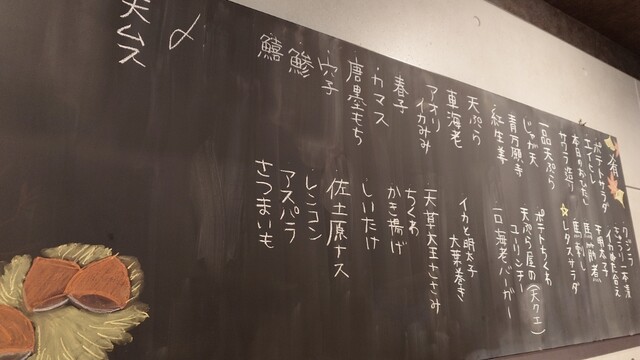 一肴
クジラ一本漬
ポテトサラダ
エイヒレ
本日のおひたし
馬筋煮
サワラ造り
馬刺し
レタスサラダ
一品天ぷら
ポテトちくわ
じゃが天
天ぷら屋の(天クエ)
ユーリンチー
青万願寺
紅生姜
一口海老バーガー
天ぷら
イカと明太子
大葉巻き
車海老
アオリイカみみ
天草大王ささみ
ちくわ
春子
かき揚げ
カマス
しいたけ
唐墨もち
佐土原ナス
穴子
レンコン
鯵
アスパラ
鱚
さつまいも
〆
天ムス